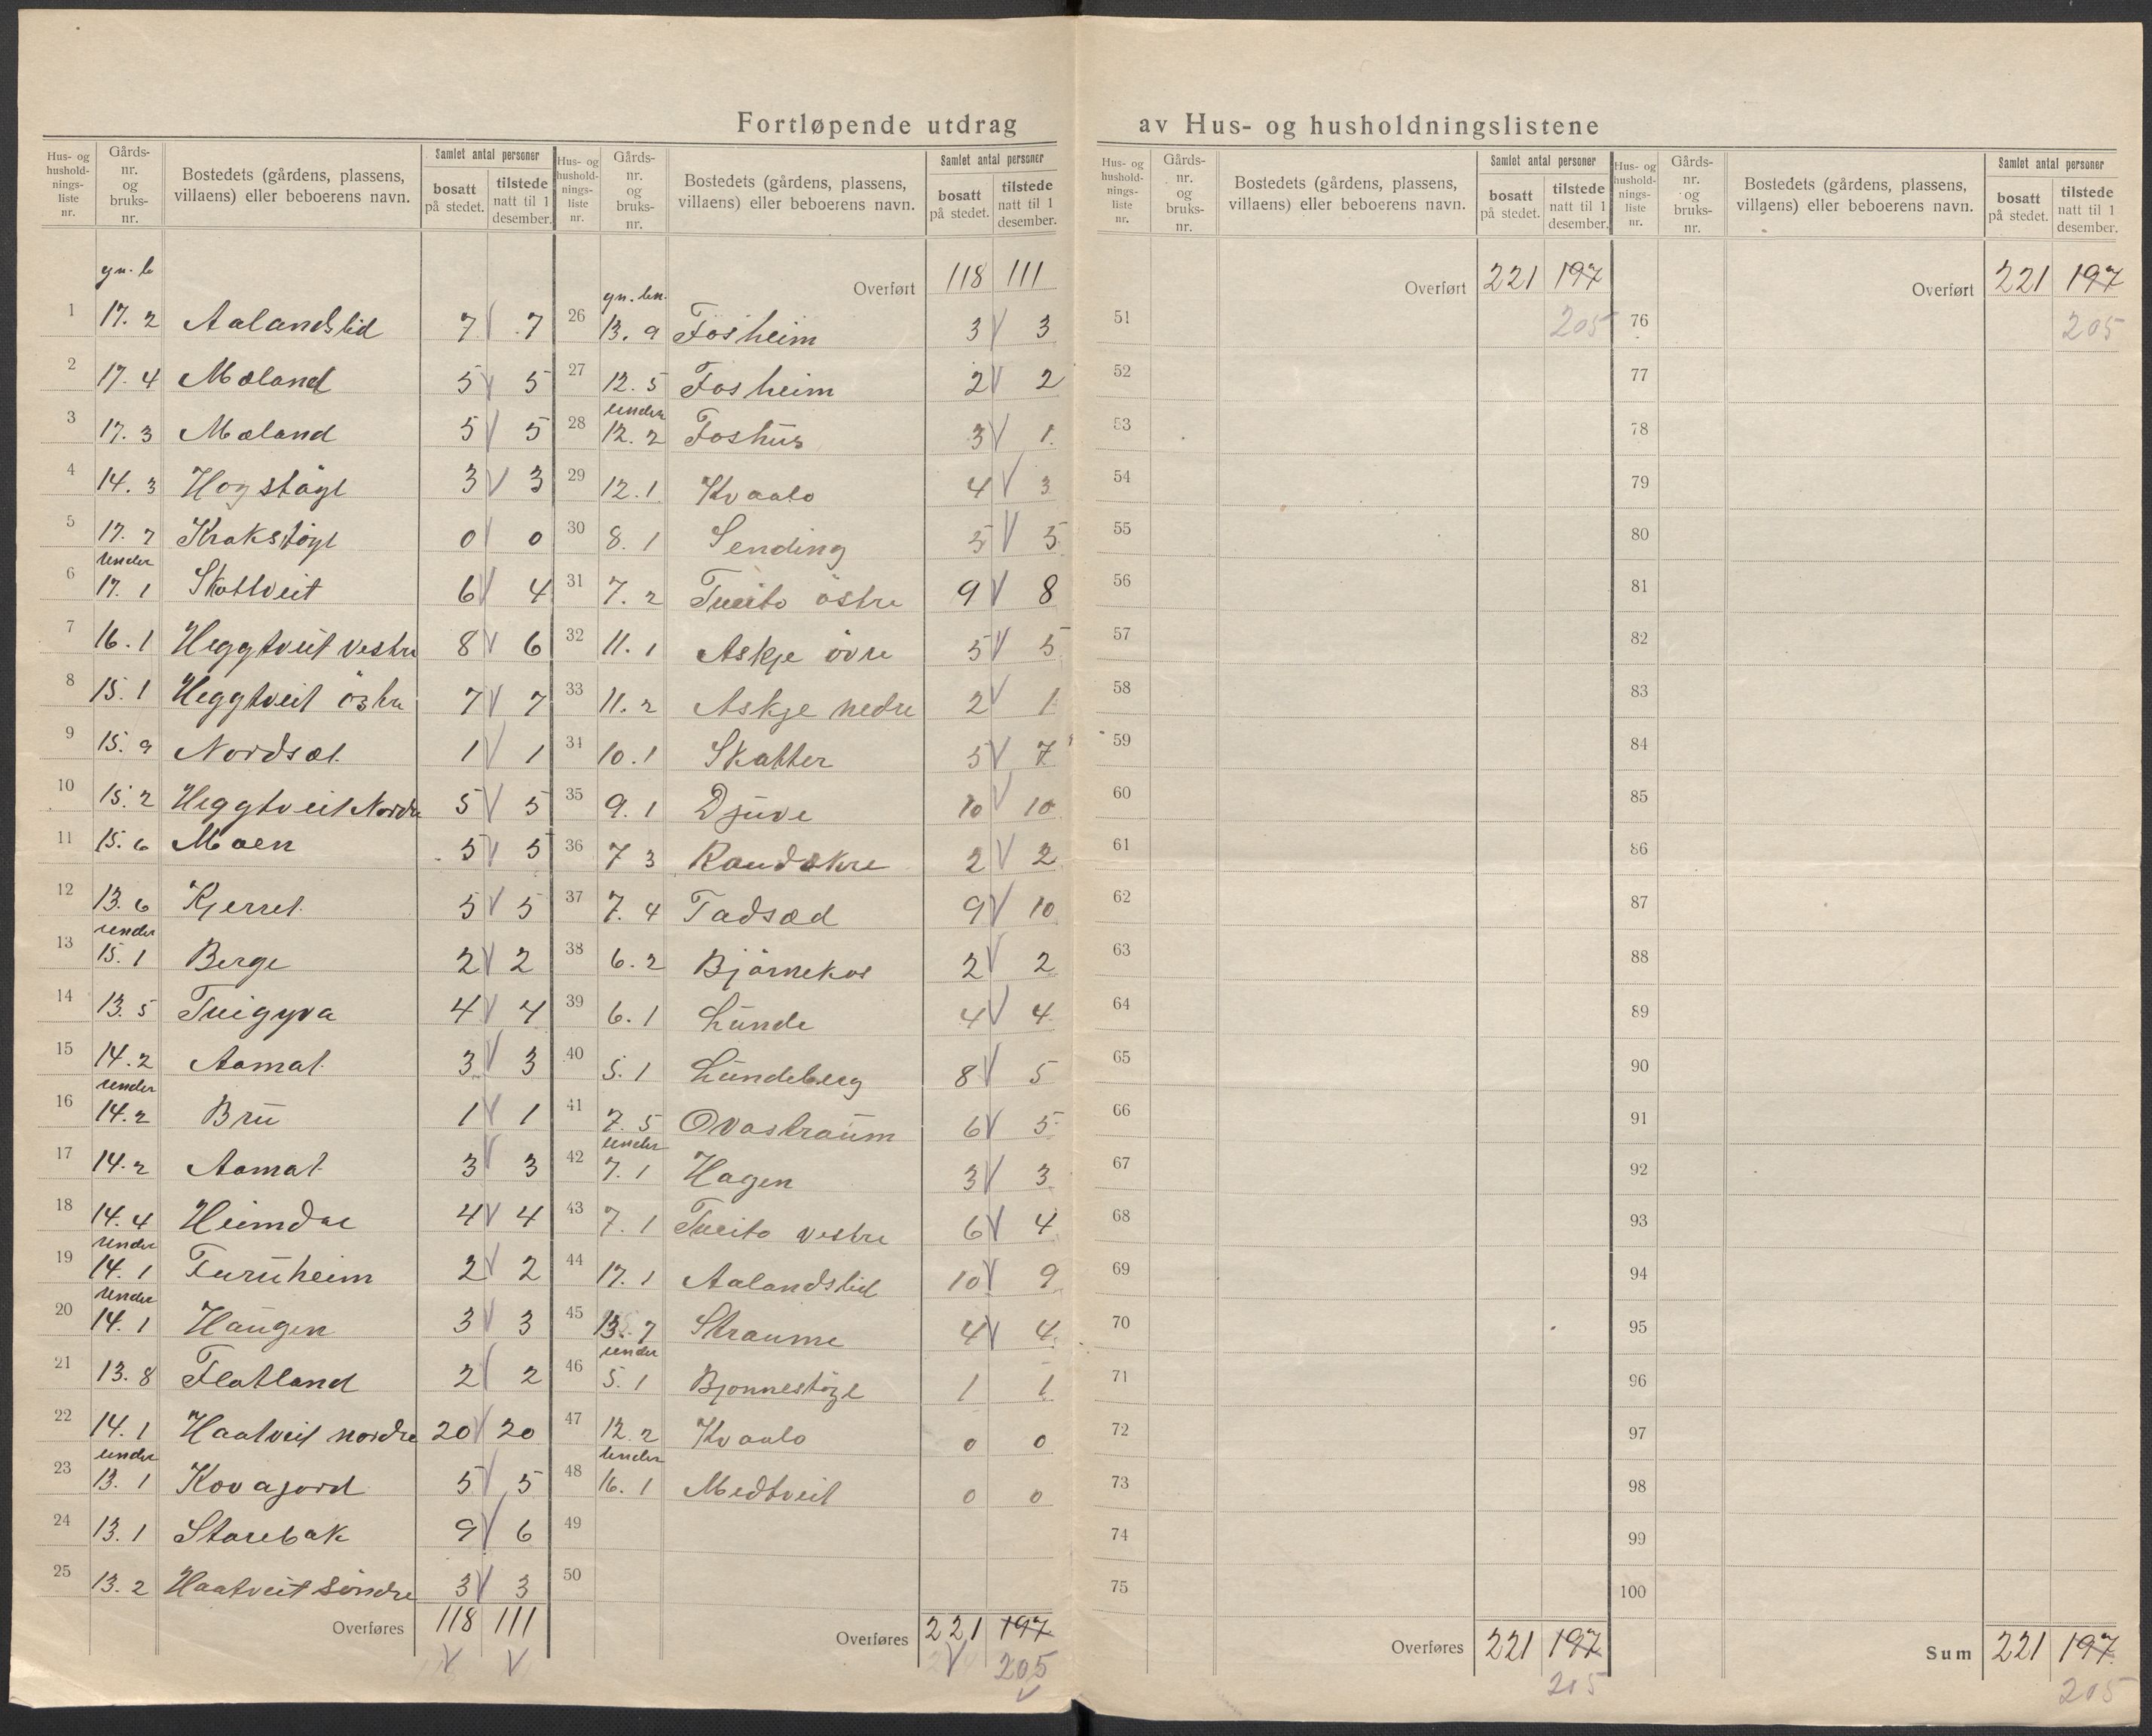 Fortløpende utdrag av Hus- og husholdningslistene
Hus- og husholdnings- liste nr. | Gårds- nr. og bruks- nr. | Bostedets (gårdens, plassens, villaens) eller beboerens navn. | Samlet antal personer | bosatt på stedet. | tilstede natt til 1 desember.
gn. b
1 17. 2 Aalandslid 7 7
2 17. 4 Mæland 5 5
3 17. 3 Mæland 5 5
4 14. 3 Hogstøyl 3 3
5 17. 7 Krakstøyl 0 0
6 under 17. 1 Skottveit 6 4
7 16. 1 Heggtveit vestre 8 6
8 15. 1 Heggtveit östre 7 7
9 15. 9 Nordsæt 1 1
10 15. 2 Heggtveit Nordre 5 5
11 15. 6 Moen 5 5
12 13. 6 Kjerret 5 5
13 under 15. 1 Berge 2 2
14 13. 5 Tveigyva 4 4
15 14. 2 Aamot 3 3
16 under 14. 2 Bru 1 1
17 14. 2 Aamot 3 3
18 14. 4 Heimdal 4 4
19 under 14. 1 Furuheim 2 2
20 under 14. 1 Haugen 3 3
21 13. 8 Flatland 2 2
22 14. 1 Haatveit nordre 20 20
23 under 13. 1 Kovajord 5 5
24 13. 1 Starebak 9 6
25 13. 2 Haatveit söndre 3 3
Overføres 118 111
Hus- og husholdnings- liste nr. | Gårds- nr. og bruks- nr. | Bostedets (gårdens, plassens, villaens) eller beboerens navn. | Samlet antal personer | bosatt på stedet. | tilstede natt til 1 desember.
Overført 118 111
gn. bn.
26 13. 9 Fosheim 3 3
27 12. 5 Fosheim 2 2
28 under 12. 2 Foshus 3 1
29 12. 1 Kvaalo 4 3
30 8. 1 Sending 5 5
31 7. 2 Tveito östre 9 8
32 11. 1 Askje övre 5 5
33 11. 2 Askje nedre 2 1
34 10. 1 Skatter 5 7
35 9. 1 Djuve 10 10
36 7 3 Raudåkre 2 2
37 7. 4 Tadsæd 9 10
38 6. 2 Björnekos 2 2
39 6. 1 Lunde 4 4
40 5. 1 Lundeberg 8 5
41 7. 5 Ovastraum 6 5
42 under 7. 1 Hagen 3 3
43 7. 1 Tveito vestre 6 4
44 17. 1 Aalandslid 10 9
45 13. 7 Straume 4 4
46 under 5. 1 Bjonnestöyl 1 1
47 12. 2 Kvaalo 0 0
48 under 16. 1 Medtveit 0 0
49
50
Overføres 221 197
205
Hus- og husholdnings- liste nr. | Gårds- nr. og bruks- nr. | Bostedets (gårdens, plassens, villaens) eller beboerens navn. | Samlet antal personer | bosatt på stedet. | tilstede natt til 1 desember.
Overført 221 197
51 205
52
53
54
55
56
57
58
59
60
61
62
63
64
65
66
67
68
69
70
71
72
73
74
75
Overføres 221 197
205
Hus- og husholdnings- liste nr. | Gårds- nr. og bruks- nr. | Bostedets (gårdens, plassens, villaens) eller beboerens navn. | Samlet antal personer | bosatt på stedet. | tilstede natt til 1 desember.
Overført 221 197
76 205
77
78
79
80
81
82
83
84
85
86
87
88
89
90
91
92
93
94
95
96
97
98
99
100
Sum 221 197
205